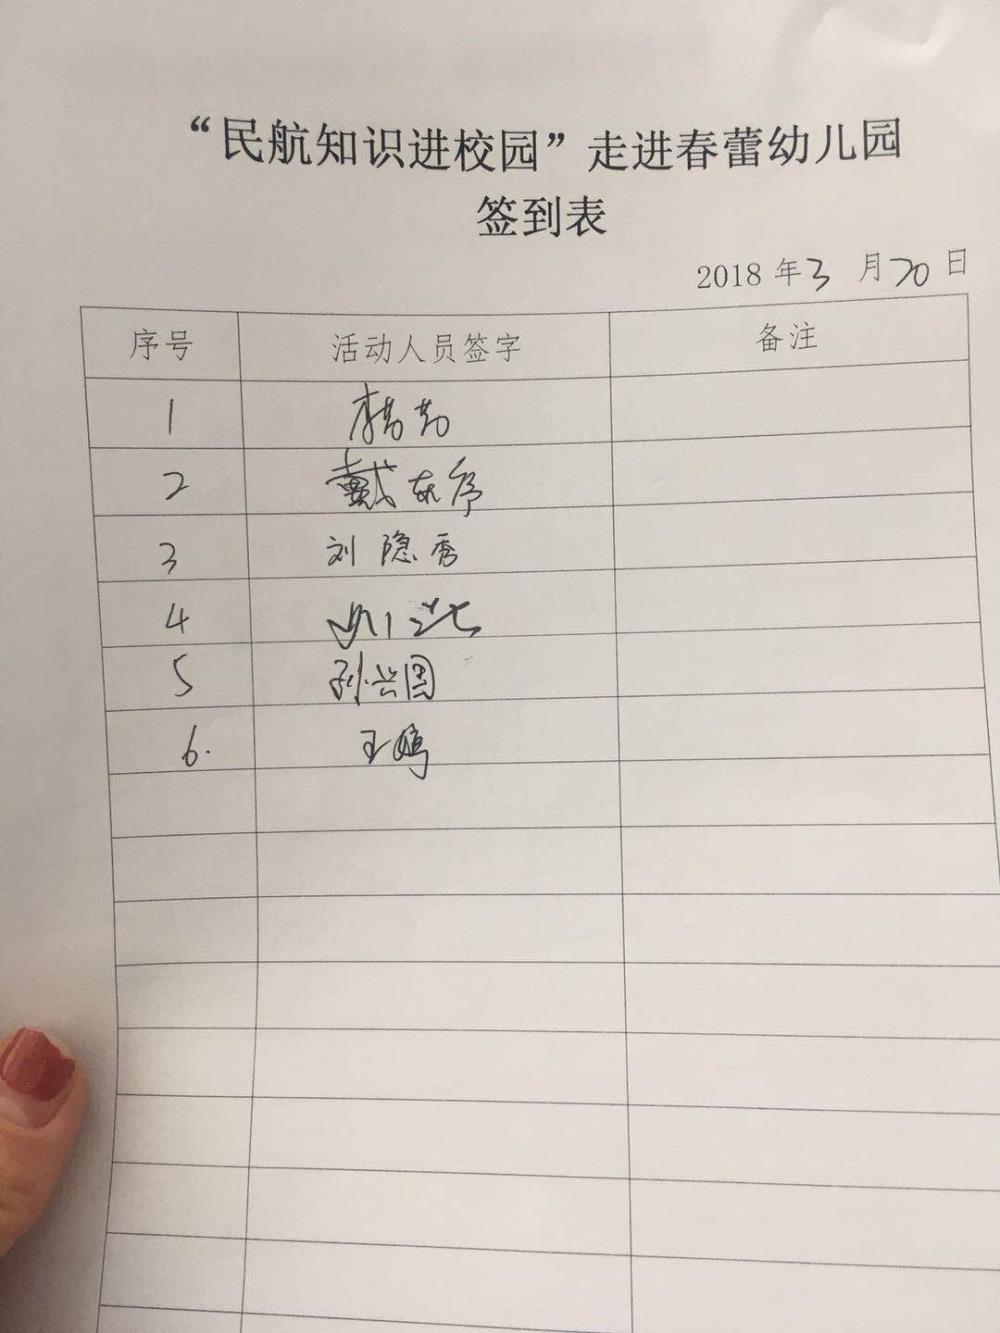 “民航知识进校园”走进春蕾幼儿园
签到表
2018 年 3 月 20 日
序号 活动人员签字 备注
1
2 戴
3 刘隐秀
4
5 孙兴国
6. 王鸣